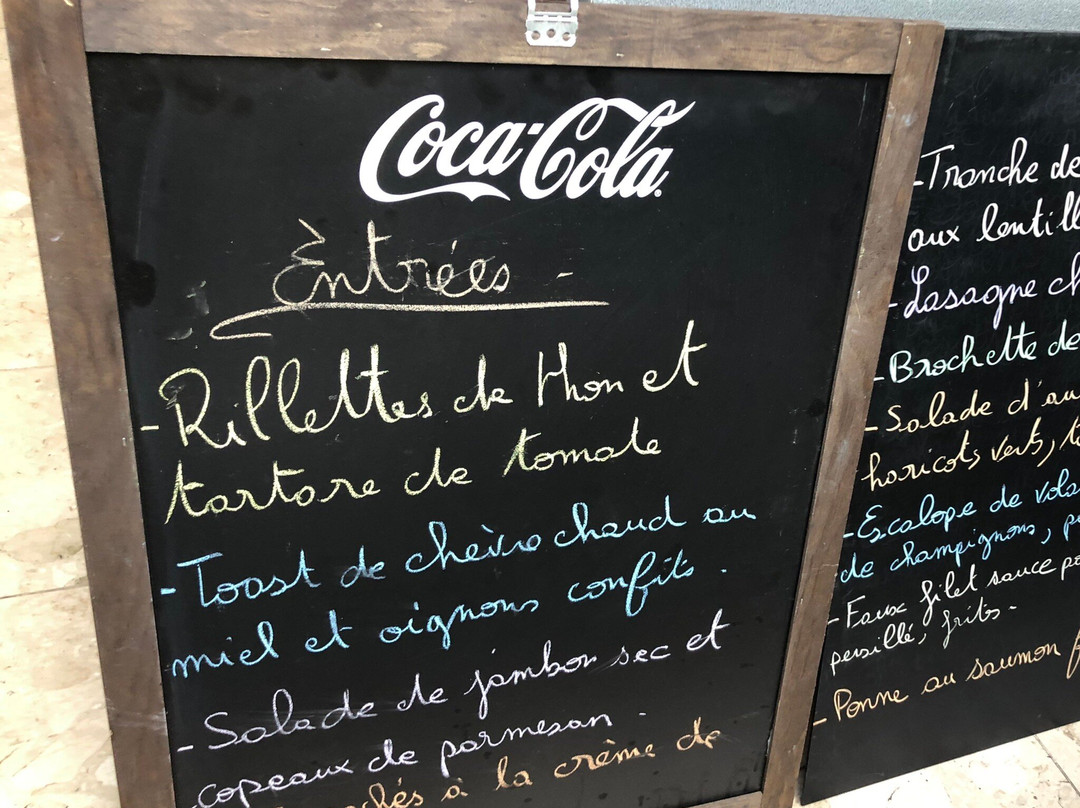 Coca-Cola
Entrées -
- Rillettes de thon et
tartare de tomate
- Toast de chèvre chaud au
miel et oignons confits.
- Salade de jambon sec et
copeaux de parmesan.
à la crème de
- Tranche de
aux lentill
- Lasagne ch
- Brochette de
- Salade d'au
haricots verts, to
- Escalope de vola
de champignons, p
- Faux filet sauce po
persillé, frites.
- Penne au saumon f